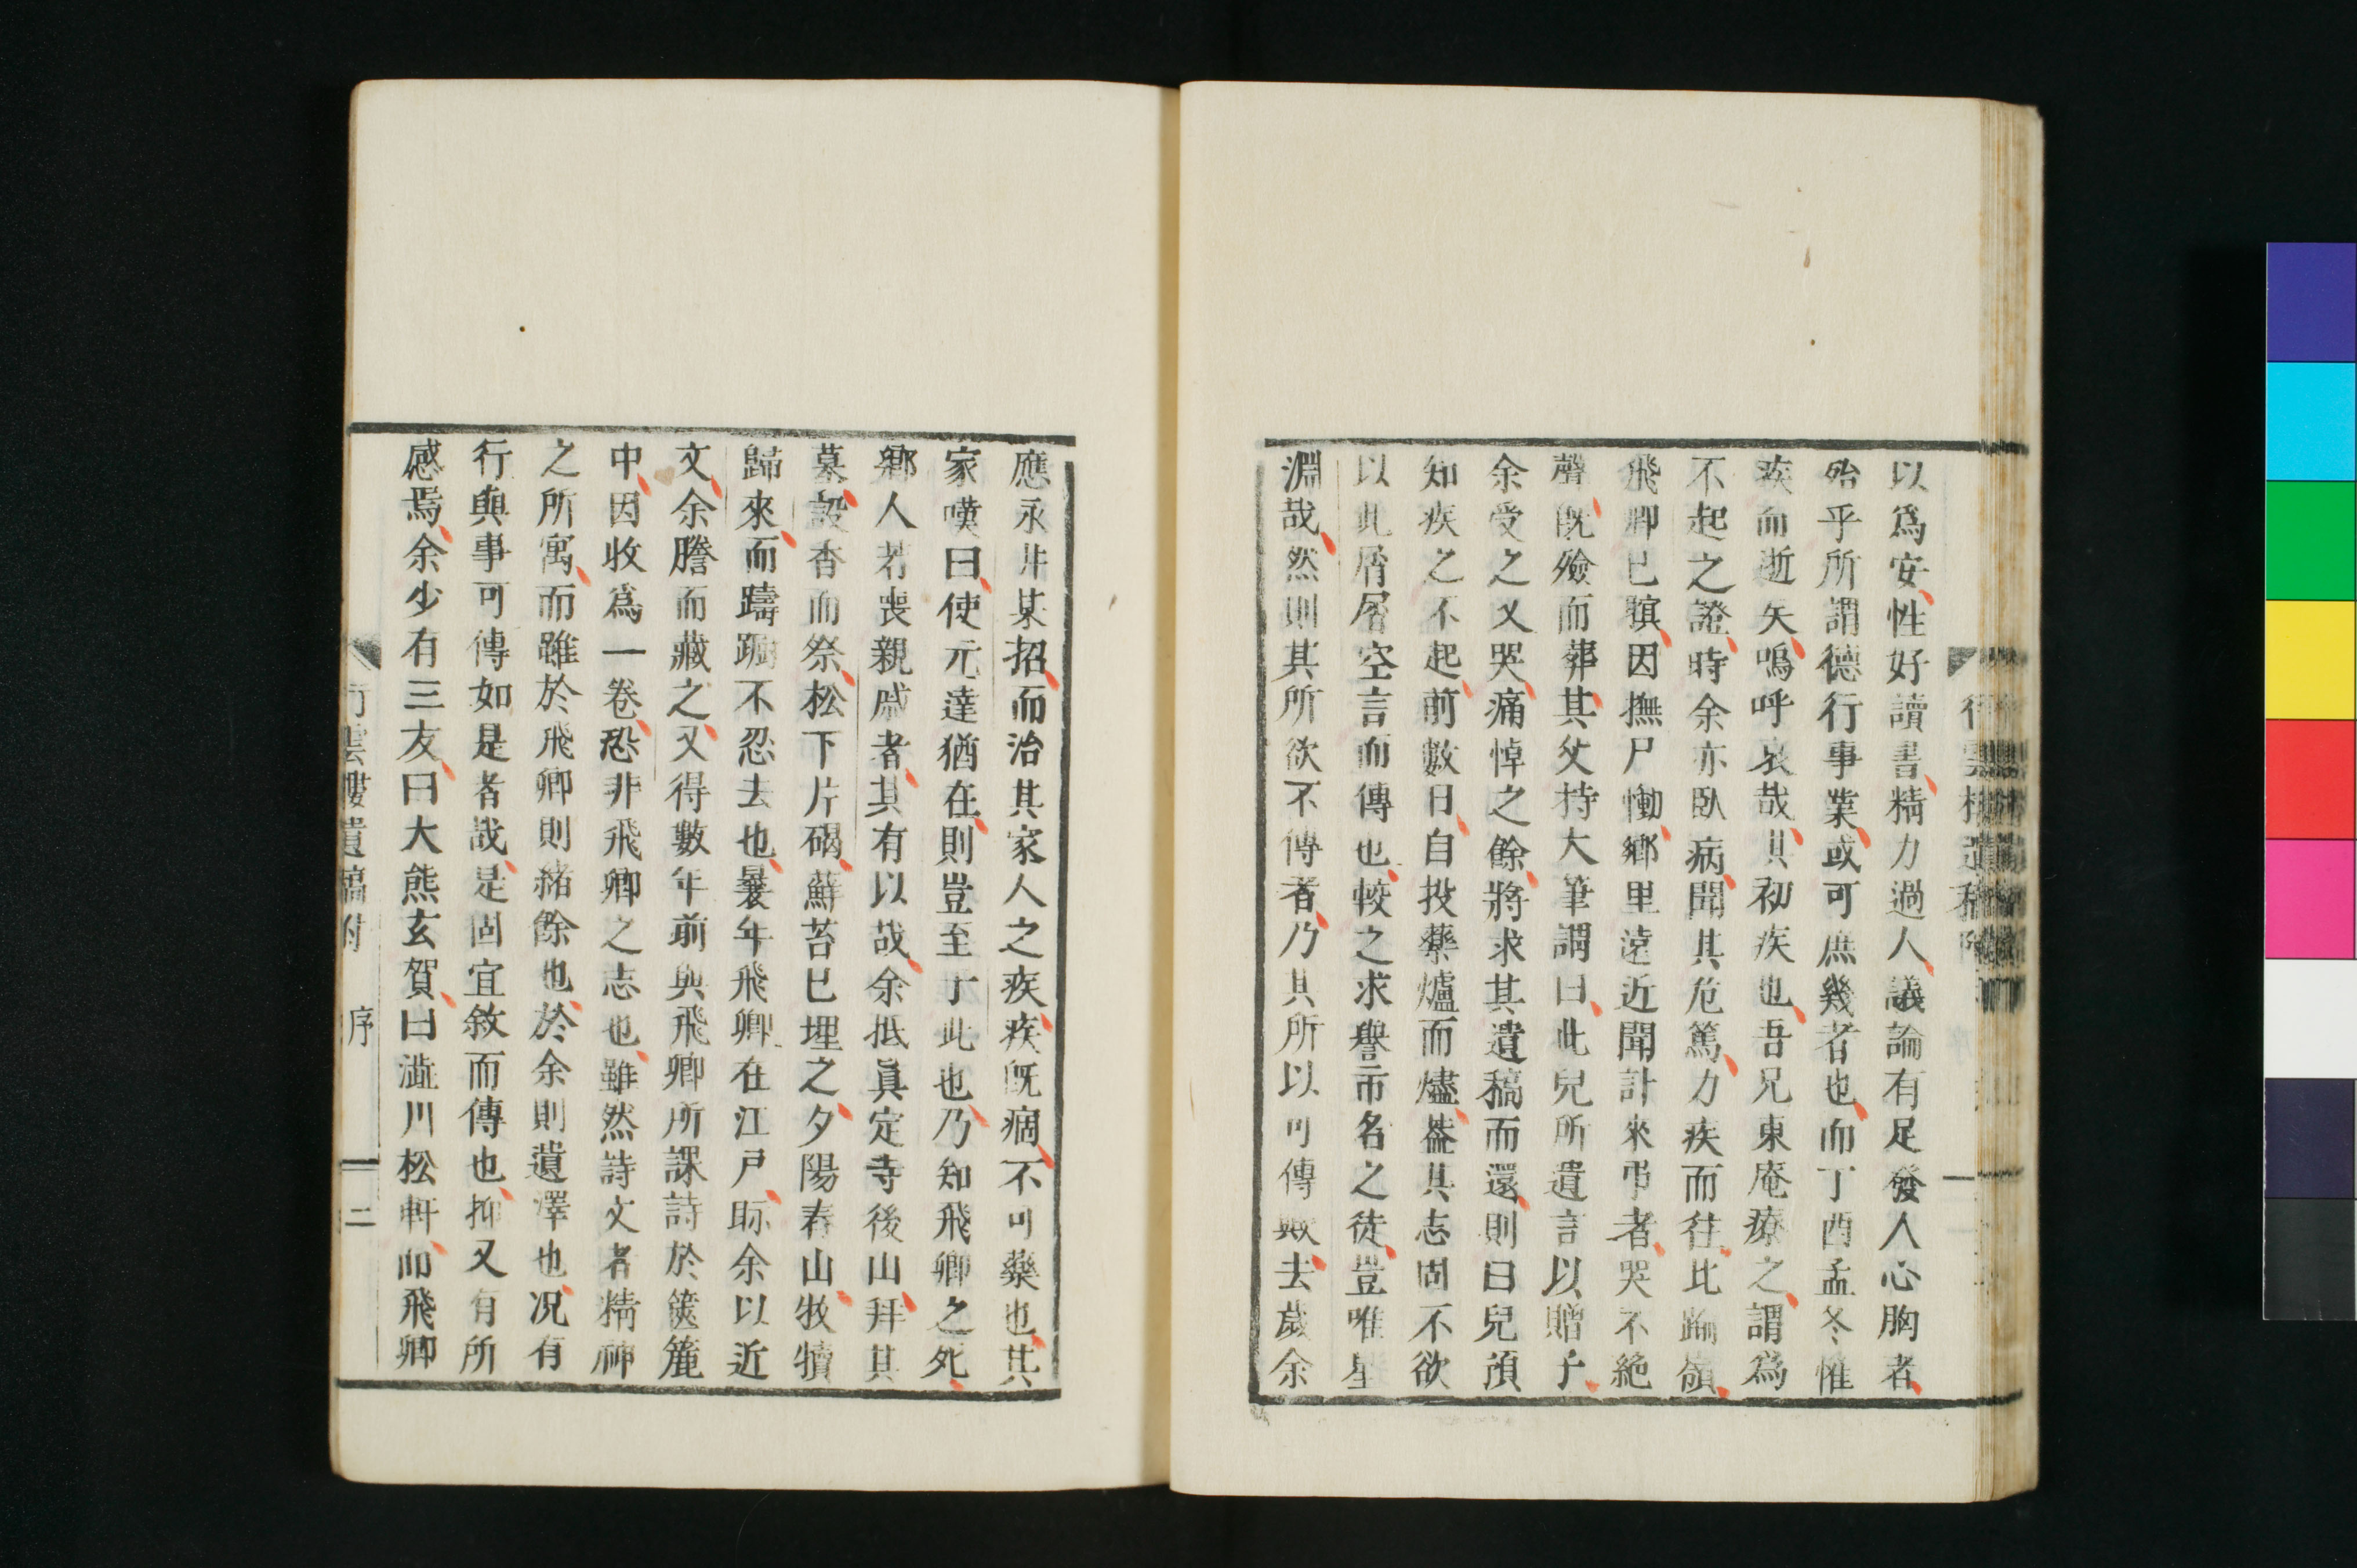 以爲安性好讀書精力過人議論有足發人心胸者
殆乎所謂德行事業或可庶幾者也而丁酉孟冬惟
疾而逝矣嗚呼哀哉其初疾也吾兄東庵療之謂爲
不起之證時余亦臥病聞其危篤力疾而往比踰嶺
飛卿已瞑因撫尸慟鄉里遠近聞訃來弔者哭不絶
聲既殮而葬其父持大筆謂曰此兒所遺言以贈子
余受之又哭痛悼之餘將求其遺稿而還則曰兒預
知疾之不起前數日自投藥爐而燼蓋其志固不欲
以此屑屑空言而傳也較之求譽市名之徒豈唯星
淵哉然則其所欲不傳者乃其所以可傳歟去歲余
應永井某招而治其家人之疾疾既痼不可藥也其
家嘆曰使元達猶在則豈至于此也乃知飛卿之死
鄉人若喪親戚者其有以哉余抵眞定寺後山拜其
墓設香而祭松下片碣蘚苔已埋之夕陽春山牧犢
歸來而躊躕不忍去也曩年飛卿在江戸眎余以近
文余謄而藏之又得數年前與飛卿所課詩於篋簏
中因收爲一卷恐非飛卿之志也雖然詩文者精神
之所寓而雖於飛卿則緒餘也於余則遺澤也況有
行與事可傳如是者哉是固宜敘而傳也抑又有所
感焉余少有三友曰大熊玄賀曰澁川松軒而飛卿
行雲樓遺稿附 序 二